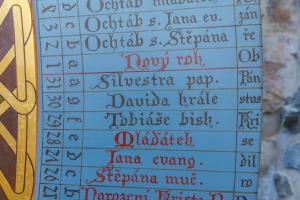 Ochtáb mláďátek
3 Ochtáb s. Jana ev.
2 Ochtáb s. Štěpána ře
1 Nový rok Ob
31 a Silvestra pap. Pán
30 g Davida krále stus
29 f Tobiáše bisk. Kři
28 e Mláďátek se
27 d Jana evang. dil
26 c Štěpána muč. ro
Narození Krista P